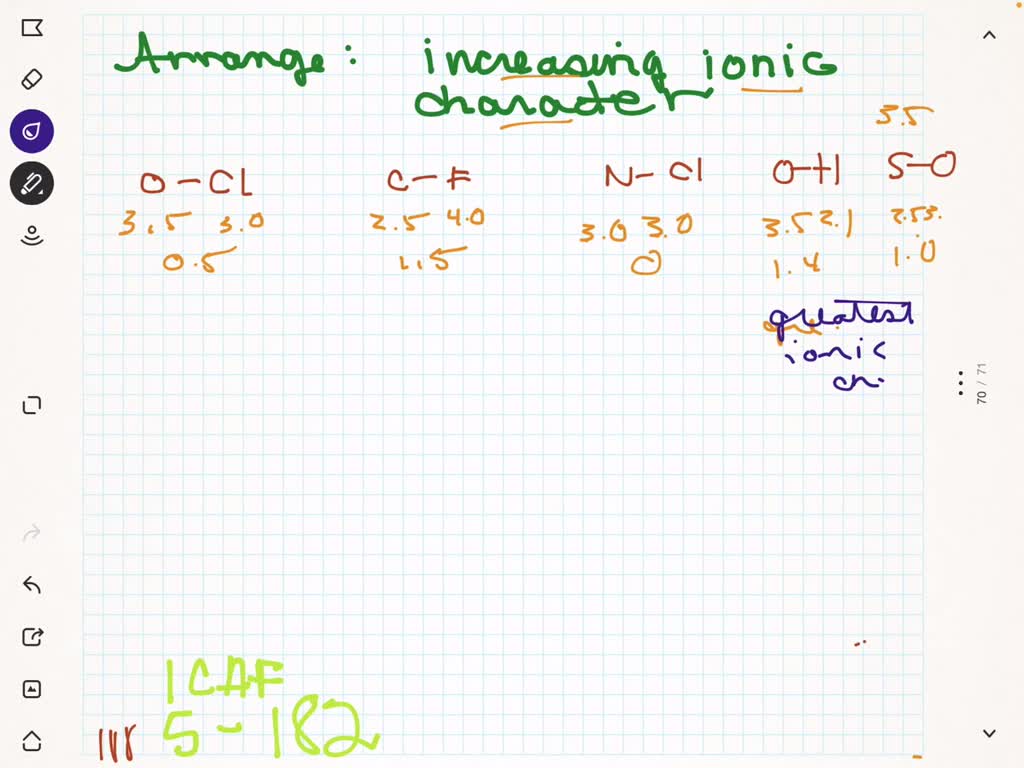 Arrange: increasing ionic
character
3.5
O-Cl C-F N-Cl O-H S-O
3.5 3.0 2.5 4.0 3.0 3.0 3.5 2.1 2.5 3.
0.5 1.5 0 1.4 1.0
greatest
ionic
ch.
70 / 71
ICAF
5-182